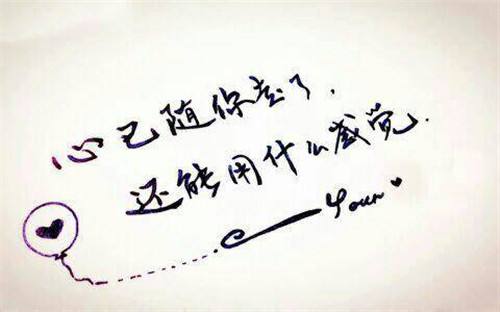 心已随你去了,
还能用什么感觉.
Your